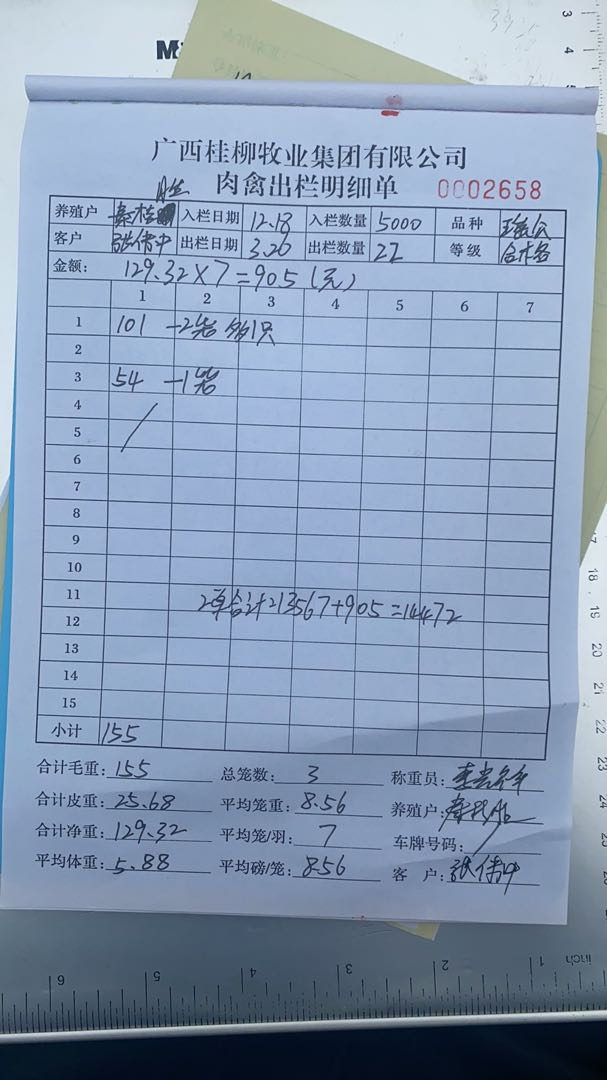 广西桂柳牧业集团有限公司
肉禽出栏明细单 0002658
胜
养殖户 秦桂 入栏日期 12.18 入栏数量 5000 品种
客户 张伟中 出栏日期 3.20 出栏数量 22 等级
金额: 129.32×7=905(元)
1 2 3 4 5 6 7
1 101 -2笼 多1只
2
3 54 -1笼
4
5
6
7
8
9
10
11 2单合计=13567+905=14472
12
13
14
15
小计 155
合计毛重: 155 总笼数: 3 称重员:
合计皮重: 25.68 平均笼重: 8.56 养殖户:
合计净重: 129.32 平均笼/羽: 7 车牌号码:
平均体重: 5.88 平均磅/笼: 8.56 客户: 张伟中